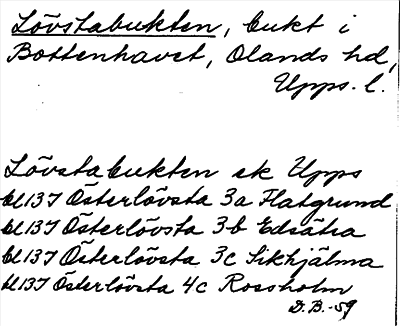 Lövstabukten, bukt i
Bottenhavet, Olands hd,
Upps. l.
Lövstabukten ek Upps
bl 137 Österlövsta 3a Flatgrund
bl 137 Österlövsta 3b Edsätra
bl 137 Österlövsta 3c Sikhjälma
bl 137 Österlövsta 4c Rossholm
D.B. -59